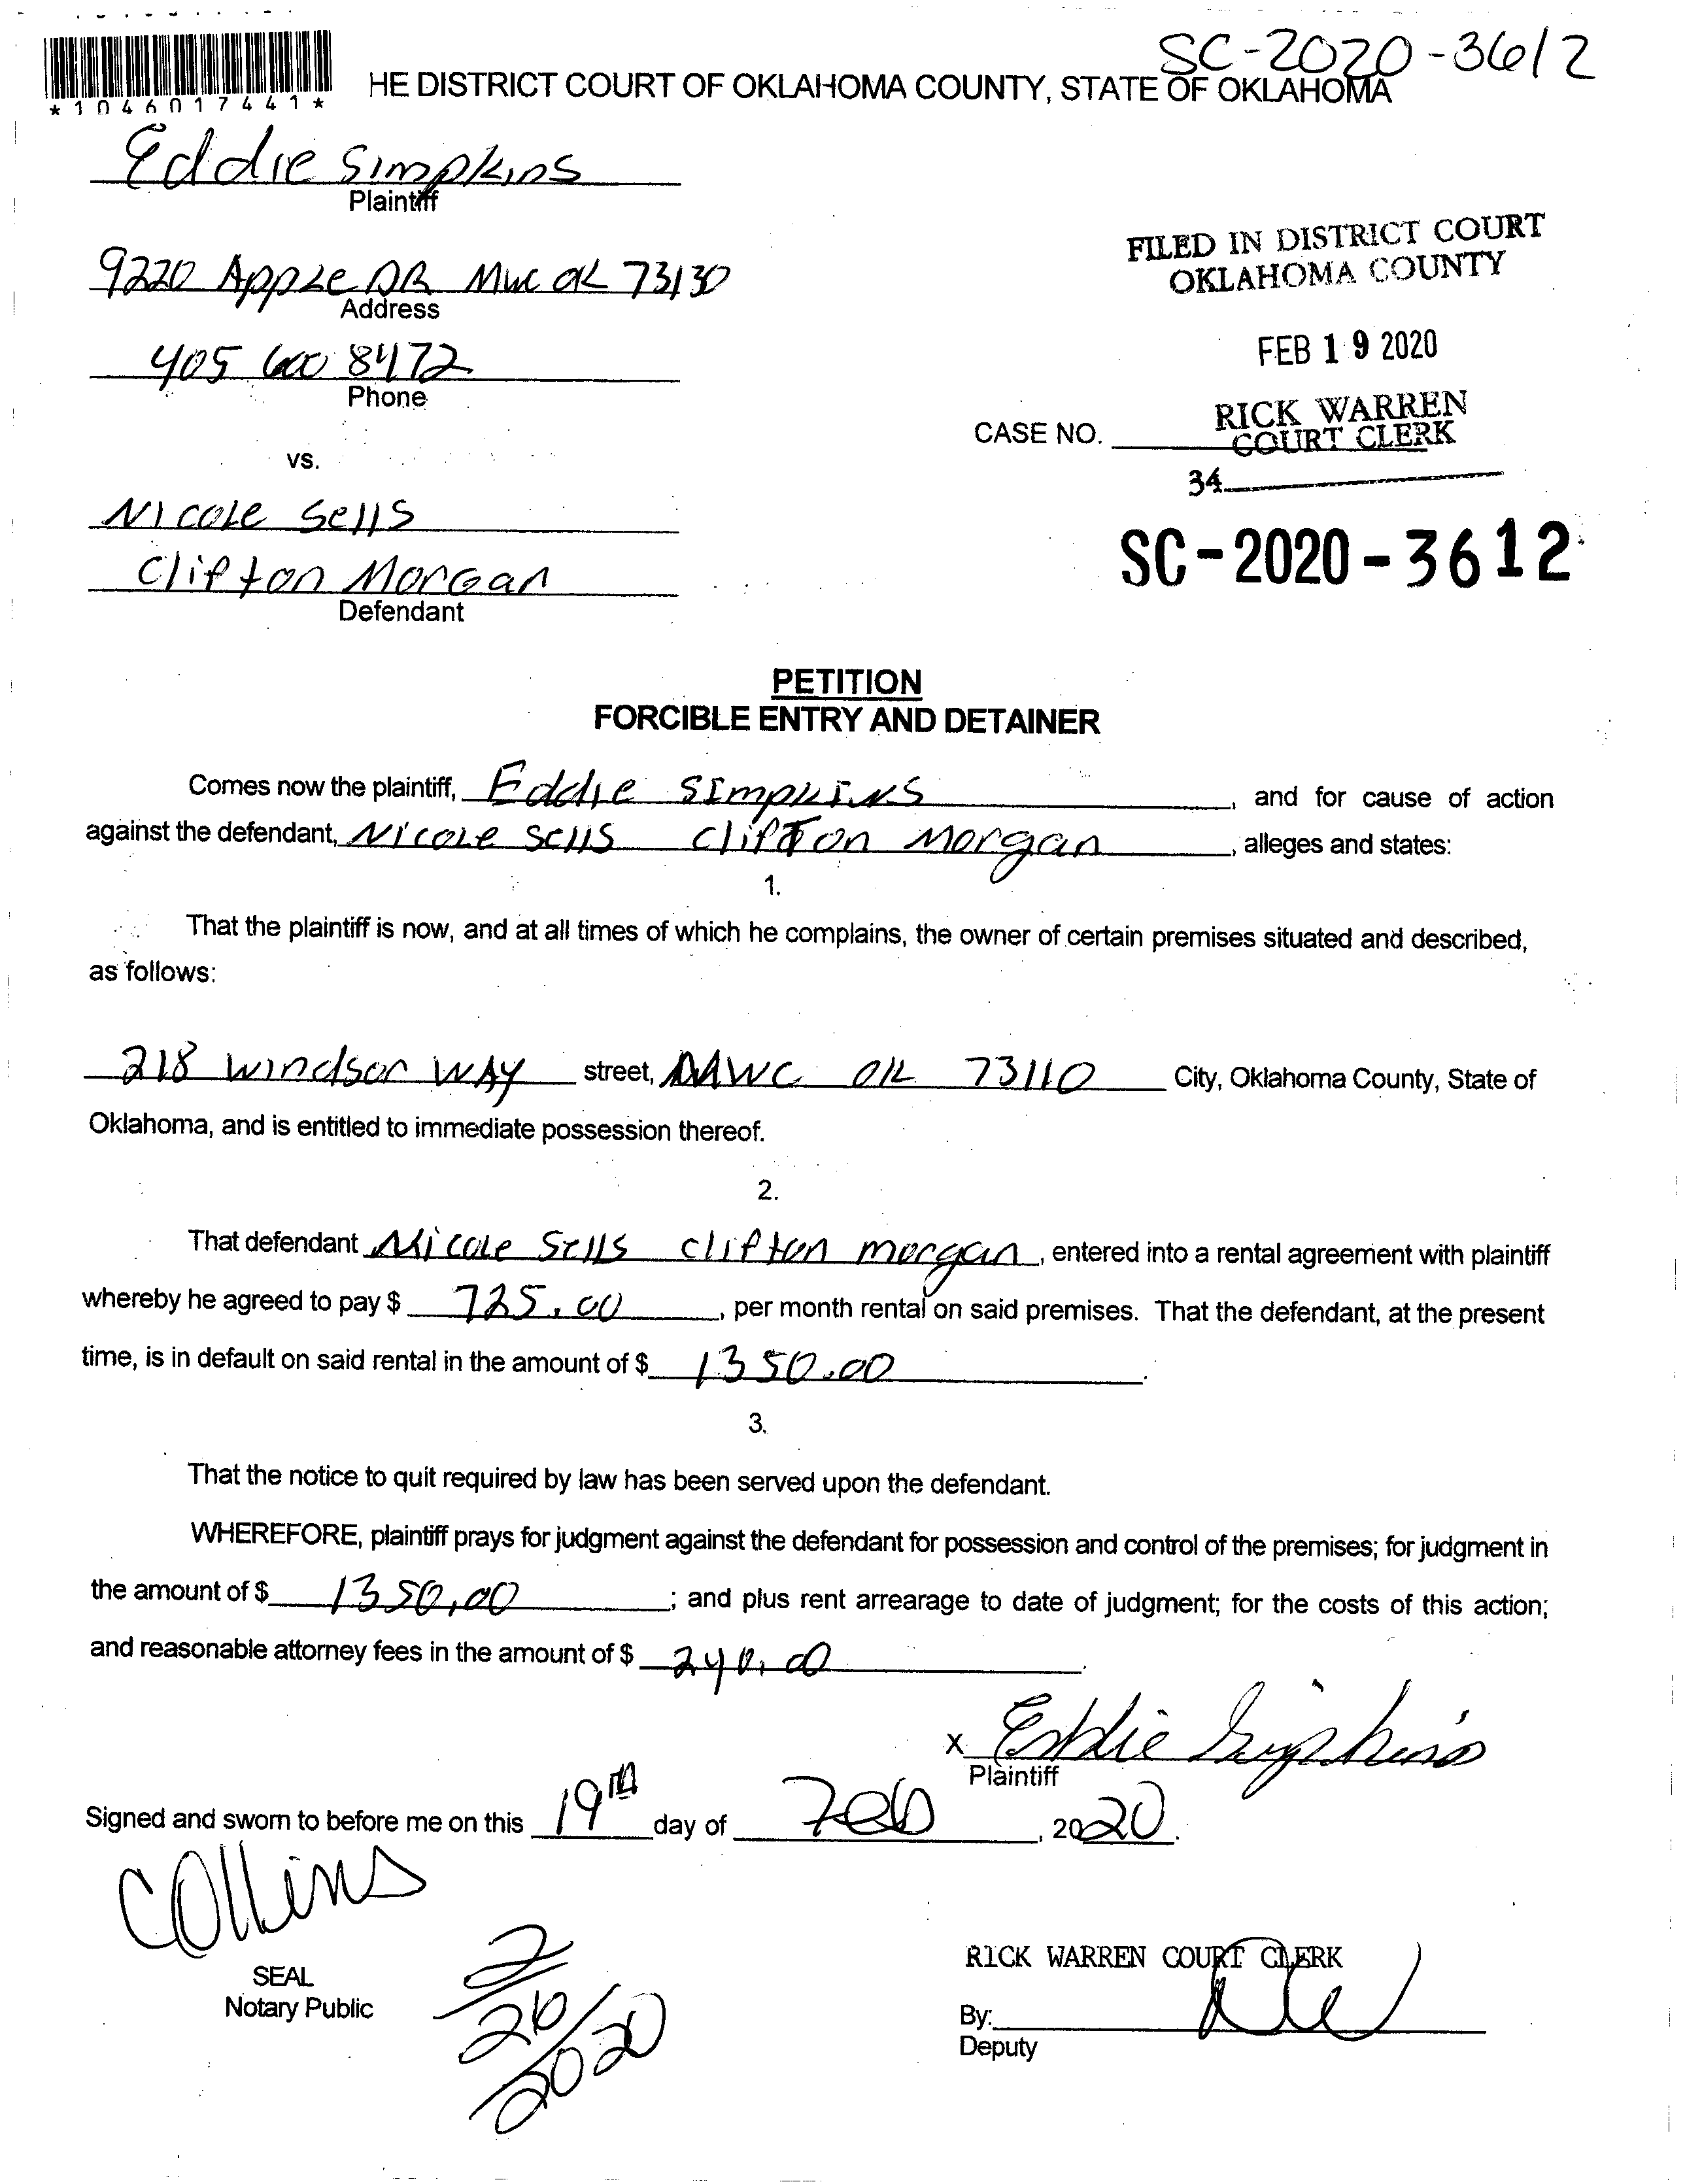 SC-2020-3612
HE DISTRICT COURT OF OKLAHOMA COUNTY, STATE OF OKLAHOMA
*1046017441*
Eddie Simpkins
Plaintiff
9220 Apple DR MWC OK 73130
Address
405 600 8472
Phone
vs.
Nicole Sells
Clifton Morgan
Defendant
FILED IN DISTRICT COURT
OKLAHOMA COUNTY
FEB 19 2020
RICK WARREN
COURT CLERK
CASE NO.
34
SC-2020-3612
PETITION
FORCIBLE ENTRY AND DETAINER
Comes now the plaintiff, Eddie Simpkins, and for cause of action
against the defendant, Nicole Sells Clifton Morgan, alleges and states:
1.
That the plaintiff is now, and at all times of which he complains, the owner of certain premises situated and described,
as follows:
218 Windsor WAY street, MWC OK 73110 City, Oklahoma County, State of
Oklahoma, and is entitled to immediate possession thereof.
2.
That defendant Nicole Sells Clifton Morgan, entered into a rental agreement with plaintiff
whereby he agreed to pay $ 725.00, per month rental on said premises. That the defendant, at the present
time, is in default on said rental in the amount of $ 1350.00.
3.
That the notice to quit required by law has been served upon the defendant.
WHEREFORE, plaintiff prays for judgment against the defendant for possession and control of the premises; for judgment in
the amount of $ 1350.00; and plus rent arrearage to date of judgment; for the costs of this action;
and reasonable attorney fees in the amount of $ 240.00.
X Eddie Simpkins
Plaintiff
Signed and sworn to before me on this 19th day of Feb, 2020.
Collins
SEAL
Notary Public
2/26/2020
RICK WARREN COURT CLERK
By:
Deputy